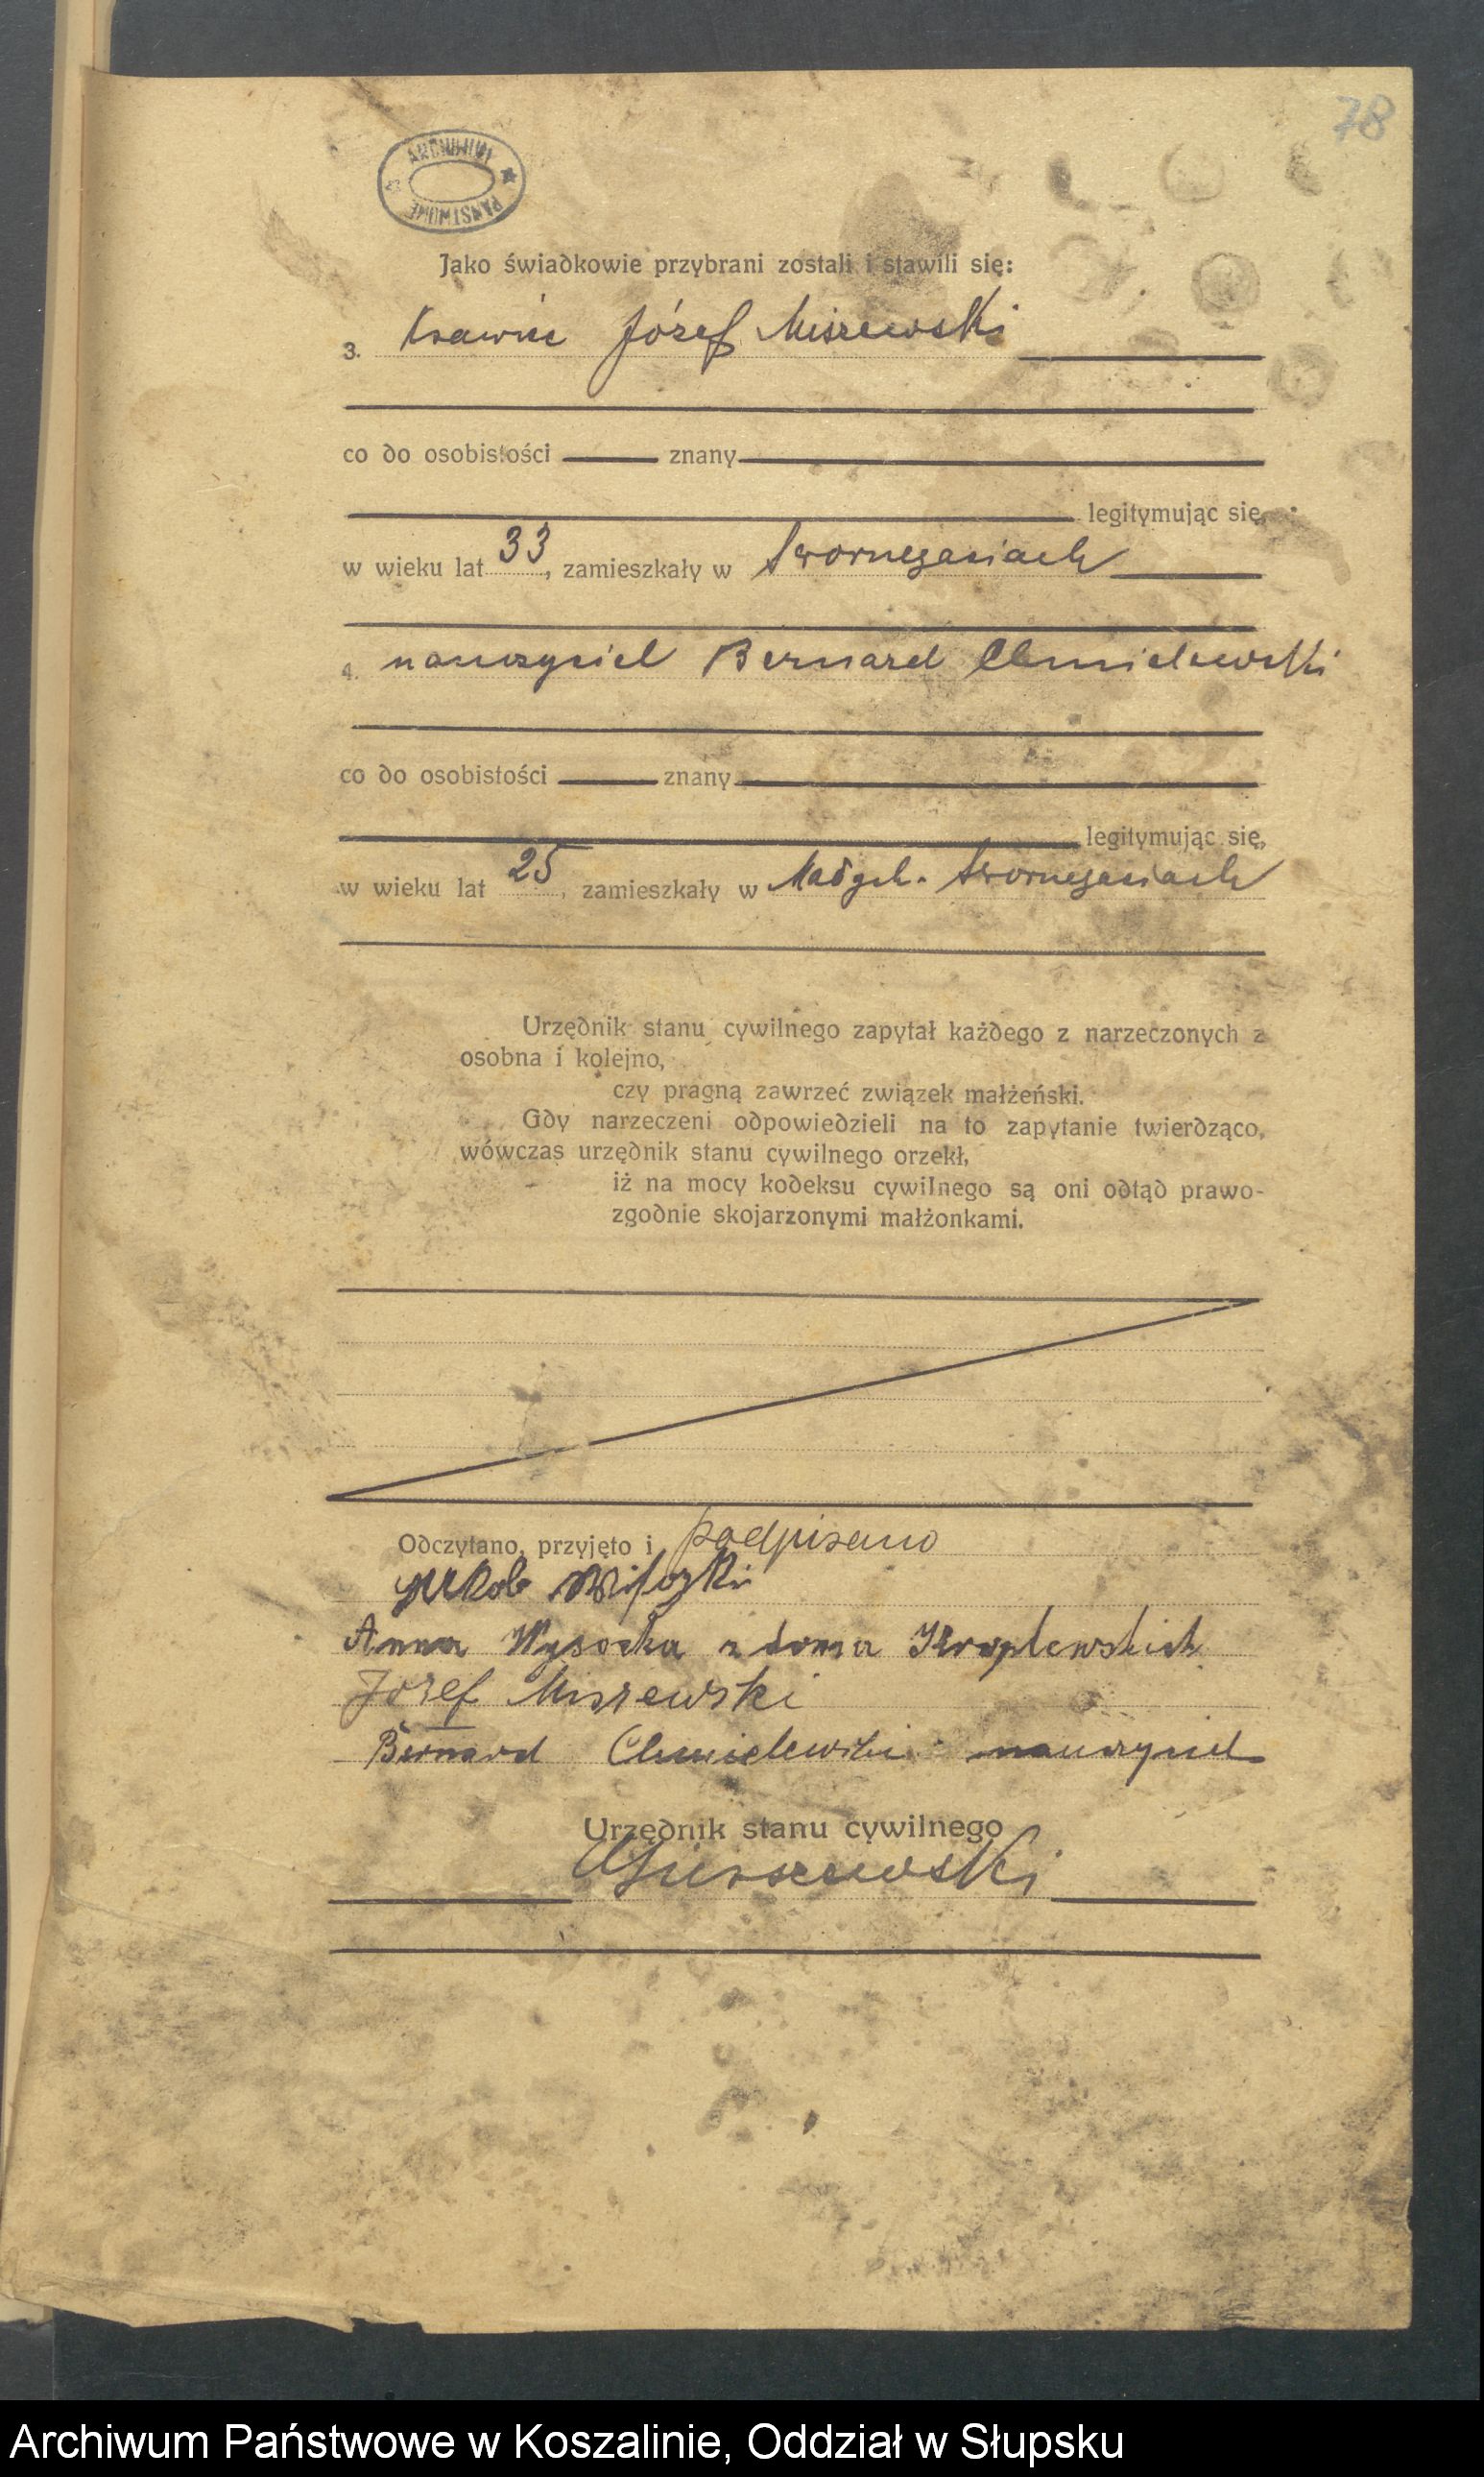 78
ARCHIWUM PAŃSTWOWE
Jako świadkowie przybrani zostali i stawili się:
3. Krawiec Józef Miszewski
co do osobistości znany
legitymując się,
w wieku lat 33, zamieszkały w Swornegaciach
4. nauczyciel Bernard Chmielewski
co do osobistości znany
legitymując się,
w wieku lat 25, zamieszkały w Swornegaciach
Urzędnik stanu cywilnego zapytał każdego z narzeczonych z
osobna i kolejno,
czy pragną zawrzeć związek małżeński.
Gdy narzeczeni odpowiedzieli na to zapytanie twierdząco,
wówczas urzędnik stanu cywilnego orzekł,
iż na mocy kodeksu cywilnego są oni odtąd prawo-
zgodnie skojarzonymi małżonkami.
Odczytano, przyjęto i podpisano
Jakob
Anna Wysocka z doma Kroplewskich
Józef Miszewski
Bernard Chmielewski nauczyciel
Urzędnik stanu cywilnego
Archiwum Państwowe w Koszalinie, Oddział w Słupsku